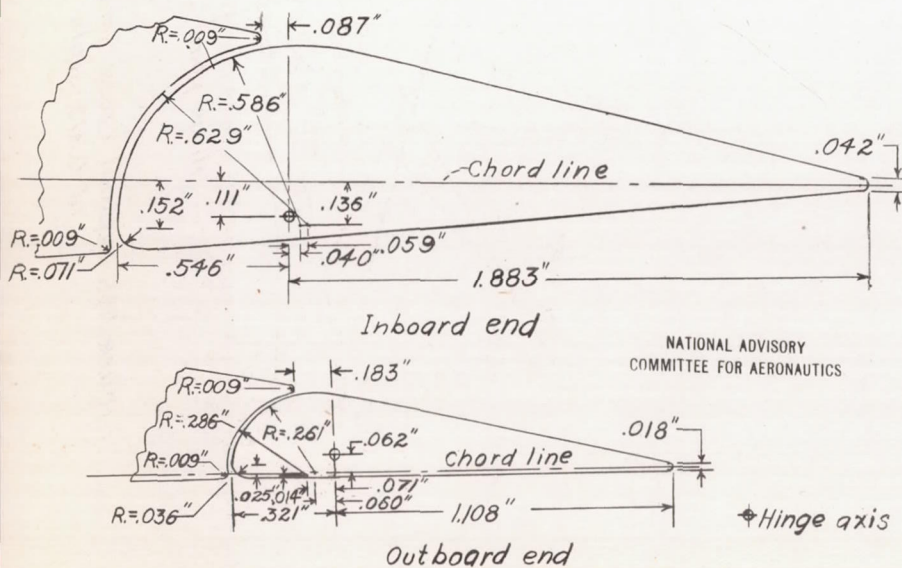 R.=.009"
.087"
R.=.586"
R.=.629"
.042"
Chord line
.152"
.111"
.136"
R.=.009"
.059"
R.=.071"
.546"
.040"
1.883"
Inboard end
NATIONAL ADVISORY
COMMITTEE FOR AERONAUTICS
.183"
R.=.009"
R.=.286"
R.=.261"
.062"
.018"
R.=.009"
chord line
.025"
.014"
.071"
.060"
R.=.036"
.321"
1.108"
Hinge axis
Outboard end